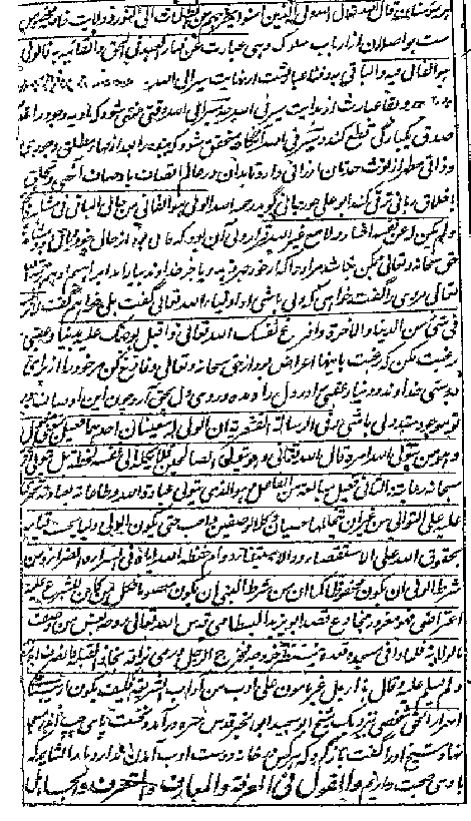 قال الله تعالی الله ولی الذین آمنوا یخرجهم من الظلمات الی النور و ولایت خاصه مخصوص
ست بواصلان از ارباب سلوک و هی عبارت عن فناء العبد فی الحق و بقائه به فالولی
هو الفانی فیه و الباقی به و فنا عبارتست از نهایت سیر الی الله
و بقا عبارتست از بدایت سیر فی الله چه سیر الی الله وقتی منتهی شود که بادیه وجود را
صدق یکبارگی قطع کند و سیر فی الله آنگاه محقق شود که بنده را بعد از فنای مطلق وجودی
و ذاتی مطهر از لوث حدثان ارزانی دارد تا بدان در عالم اتصاف باوصاف الهی و تخلق
باخلاق ربانی ترقی کند ابو علی جوزجانی گوید رحمه الله الولی هو الفانی من حاله الباقی فی مشاهدة
ولم یکن له عن نفسه اخبار ولا مع غیر الله قرار ولی آن بود که فانی بود از حال خود و باقی بمشاهده
حق سبحانه و تعالی ممکن نباشد مر او را که از خود خبر دهد و با جز خداوند بیارامد ابراهیم ادهم رحمه الله
تعالی مردی را گفت خواهی که ولی باشی از اولیاء الله تعالی گفت بلی خواهم گفت لا ترغب
فی شئ من الدنیا والآخرة وافرغ نفسک لله تعالی واقبل بوجهک علیه بدنیا و عقبی
رغبت مکن که رغبت باینها اعراض بود از حق سبحانه و تعالی و فارغ کن مر خود را از برای
دوستی خداوند و دنیا و عقبی را در دل راه مده و روی دل بحق آر چون این اوصاف
تو موجود شد ولی باشی وفی الرسالة القشیریة ان الولی له معنیان احدهما فعیل بمعنی مفعول
وهو من یتولی الله امره قال الله تعالی وهو یتولی الصالحین فلا یکله الی نفسه لحظة بل یتولی الحق
سبحانه رعایته والثانی فعیل مبالغة من الفاعل وهو الذی یتولی عبادة الله وطاعته فعبادته تجری
علیه علی التوالی من غیر ان یتخللها عصیان وکلا الوصفین واجب حتی یکون الولی ولیا یجب قیامه
بحقوق الله علی الاستقصاء والاستیفاء ودوام حفظ الله ایاه فی السراء والضراء ومن
شرط الولی ان یکون محفوظا کما ان من شرط النبی ان یکون معصوما فکل من کان للشرع علیه
اعتراض فهو مغرور مخادع قصد ابو یزید البسطامی قدس الله تعالی روحه بعض من وصف
بالولایة فلما وافی مسجده قعد ینتظر خروجه فخرج الرجل ورمی بزاقه تجاه القبلة فانصرف ابو یزید
ولم یسلم علیه وقال هذا رجل غیر مأمون علی ادب من آداب الشریعة فکیف یکون امینا علی
اسرار الحق شخصی نزدیک شیخ ابو سعید ابو الخیر قدس سره درآمد و نخست پای چپ در مسجد
نهاد شیخ او را گفت بازگرد که هر کس خانه دوست ادب اندر آمدن ندارد ما را نشاید که
با وی صحبت داریم والقول فی المعرفة والعارف والمتعرف والجاهل